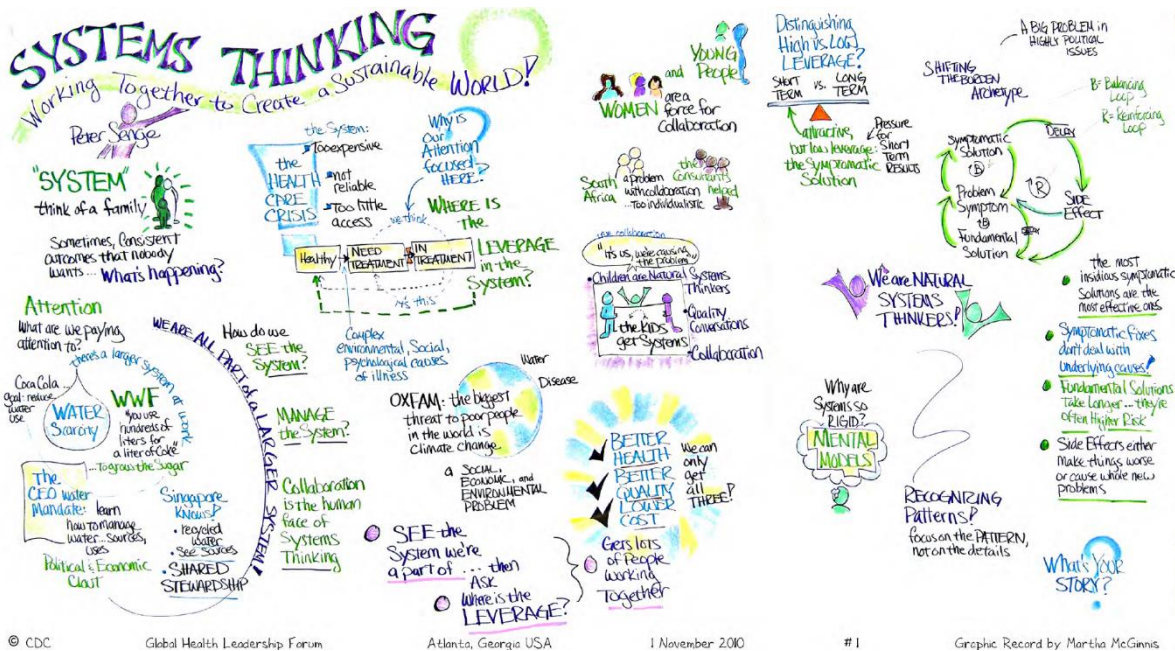 SYSTEMS THINKING
Working Together to Create a Sustainable WORLD!
Peter Senge
"SYSTEM"
think of a family
Sometimes, Consistent
outcomes that nobody
wants... What's happening?
Attention
What are we paying
attention to?
there's a larger system at work
Coca Cola...
goal: reduce
water
use
WATER
Scarcity
WWF
"you use
hundreds of
liters for
a liter of Coke"
...To grow the Sugar
The
CEO Water
Mandate: learn
how to manage
water... sources,
uses
Political & Economic
Clout
Singapore
KNOWS!
• recycled
water
• See Sources
• SHARED
STEWARDSHIP
WE ARE ALL PART of a LARGER SYSTEM!
the System:
Too expensive
not
reliable
Too little
access
the
HEALTH
CARE
CRISIS
Why is
Our
Attention
focused
HERE?
we think
WHERE IS
the
LEVERAGE
in the
System?
Healthy
NEED
TREATMENT
IN
TREATMENT
Complex
environmental, Social,
psychological causes
of illness
How do we
SEE the
System?
MANAGE
the System?
Collaboration
is the human
face of
Systems
Thinking
Water
Disease
OXFAM: the biggest
threat to poor people
in the world is
climate change
a SOCIAL,
ECONOMIC, and
ENVIRONMENTAL
PROBLEM
SEE the
System we're
a part of ... then
ASK
Where is the
LEVERAGE?
YOUNG
and People
WOMEN are a
force for
Collaboration
South
Africa
a problem
with collaboration
... Too individualistic
the
Consultants
helped
true collaboration
"it's us, we're causing
the problem"
• Children are Natural Systems
Thinkers
the KIDS
get Systems
• Quality
Conversations
• Collaboration
BETTER
HEALTH
BETTER
QUALITY
LOWER
COST
We can
only
get
all
THREE!
Gets lots
of People
working
Together
Distinguishing
High vs. Low
LEVERAGE?
SHORT TERM vs. LONG TERM
attractive,
but low leverage:
the Symptomatic
Solution
Pressure
for
Short
Term
RESULTS
A BIG PROBLEM in
HIGHLY POLITICAL
ISSUES
SHIFTING
THE BURDEN
Archetype
B = Balancing
Loop
R = Reinforcing
Loop
Symptomatic
Solution
DELAY
B
R
Problem
Symptom
SIDE
EFFECT
B
Fundamental
Solution
We are NATURAL
SYSTEMS
THINKERS!
Why are
Systems so
RIGID?
MENTAL
MODELS
RECOGNIZING
Patterns!
focus on the PATTERN,
not on the details
the most
insidious symptomatic
Solutions are the
most effective ones
Symptomatic fixes
don't deal with
underlying causes!
Fundamental Solutions
Take Longer... they're
often Higher Risk
Side Effects either
make things worse
or cause whole new
problems
What's YOUR
STORY?
© CDC Global Health Leadership Forum Atlanta, Georgia USA 1 November 2010 #1 Graphic Record by Martha McGinnis